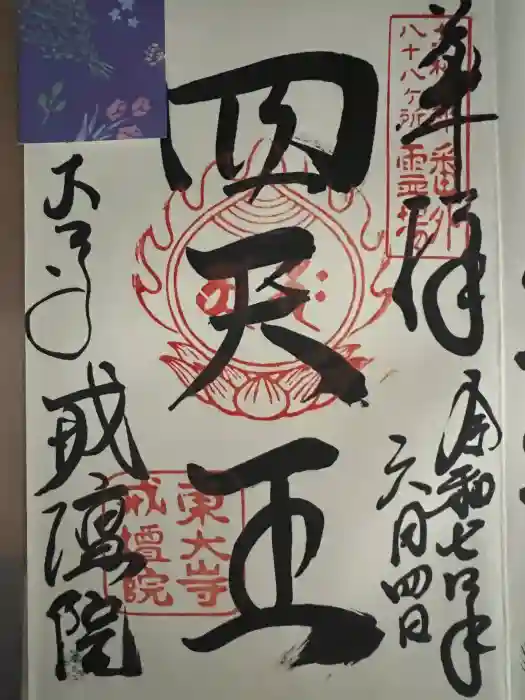 奉拝
令和七年
六月四日
大和北部番外
八十八ヶ所霊場
四天王
東大寺
戒壇院
東大寺
戒壇院